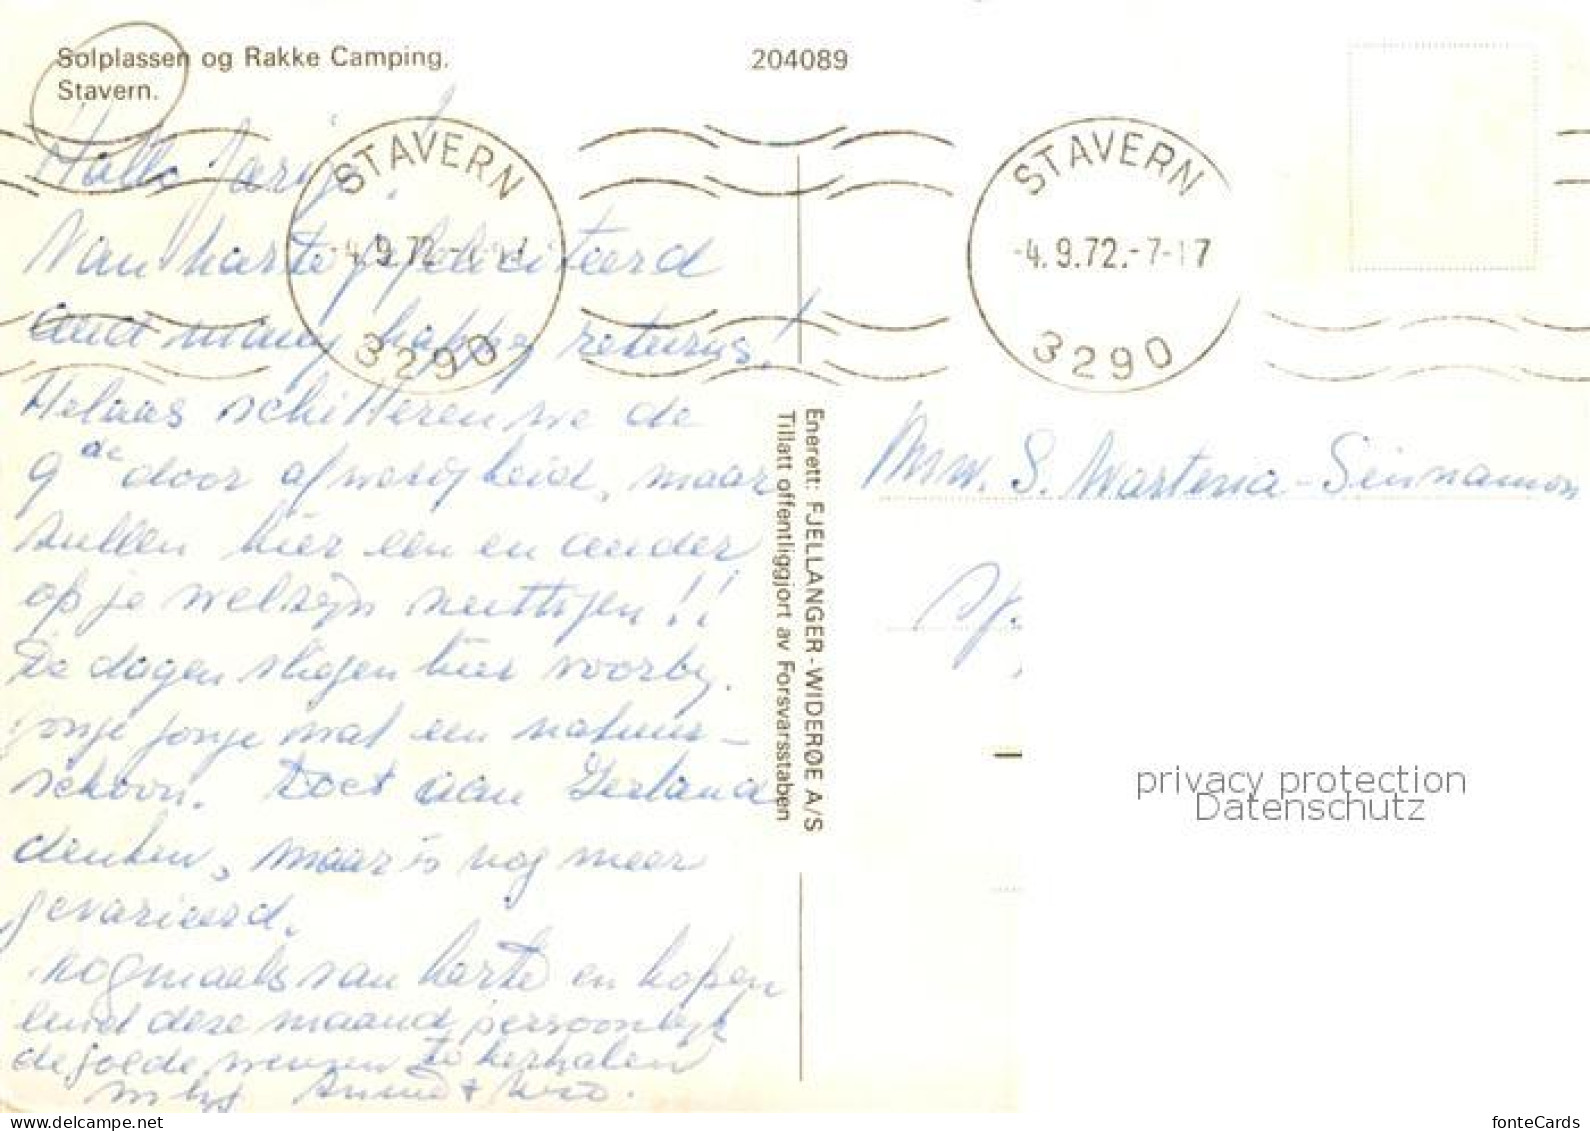 Solplassen og Rakke Camping.
Stavern.
204089
Hallo
Van harte gefeliciteerd
and many happy returns!
Helaas schitteren we de
9de door afwezigheid, maar
zullen hier een en ander
op je welzijn nuttigen!!
De dagen vliegen hier voorby.
jonge jonge wat een natuur-
schoon. Doet aan Ierland
denken, maar is nog meer
gevarieerd.
Nogmaals van harte en hopen
eind deze maand persoonlijk
de goede wensen te herhalen
STAVERN
-4.9.72.-
3290
STAVERN
-4.9.72.-7-17
3290
Enerett: FJELLANGER-WIDERØE A/S
Tillatt offentliggjort av Forsvarsstaben
Mw. S. Wartena-Sinnamon
privacy protection
Datenschutz
www.delcampe.net
fonteCards